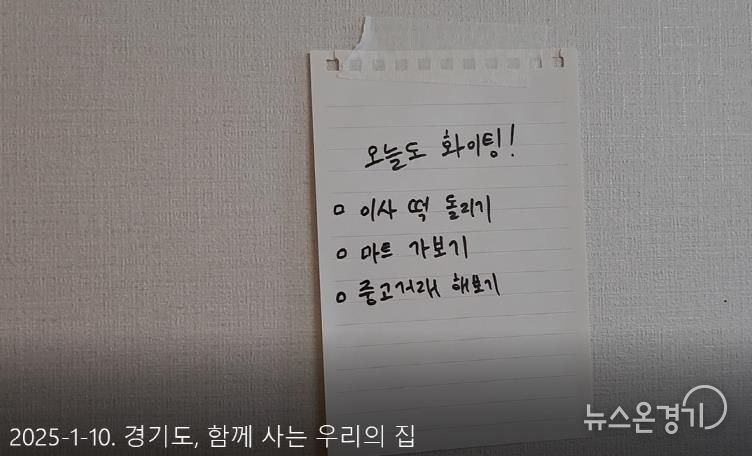 오늘도 화이팅!
□ 이사 떡 돌리기
□ 마트 가보기
□ 중고거래 해보기
뉴스온경기
2025-1-10. 경기도, 함께 사는 우리의 집